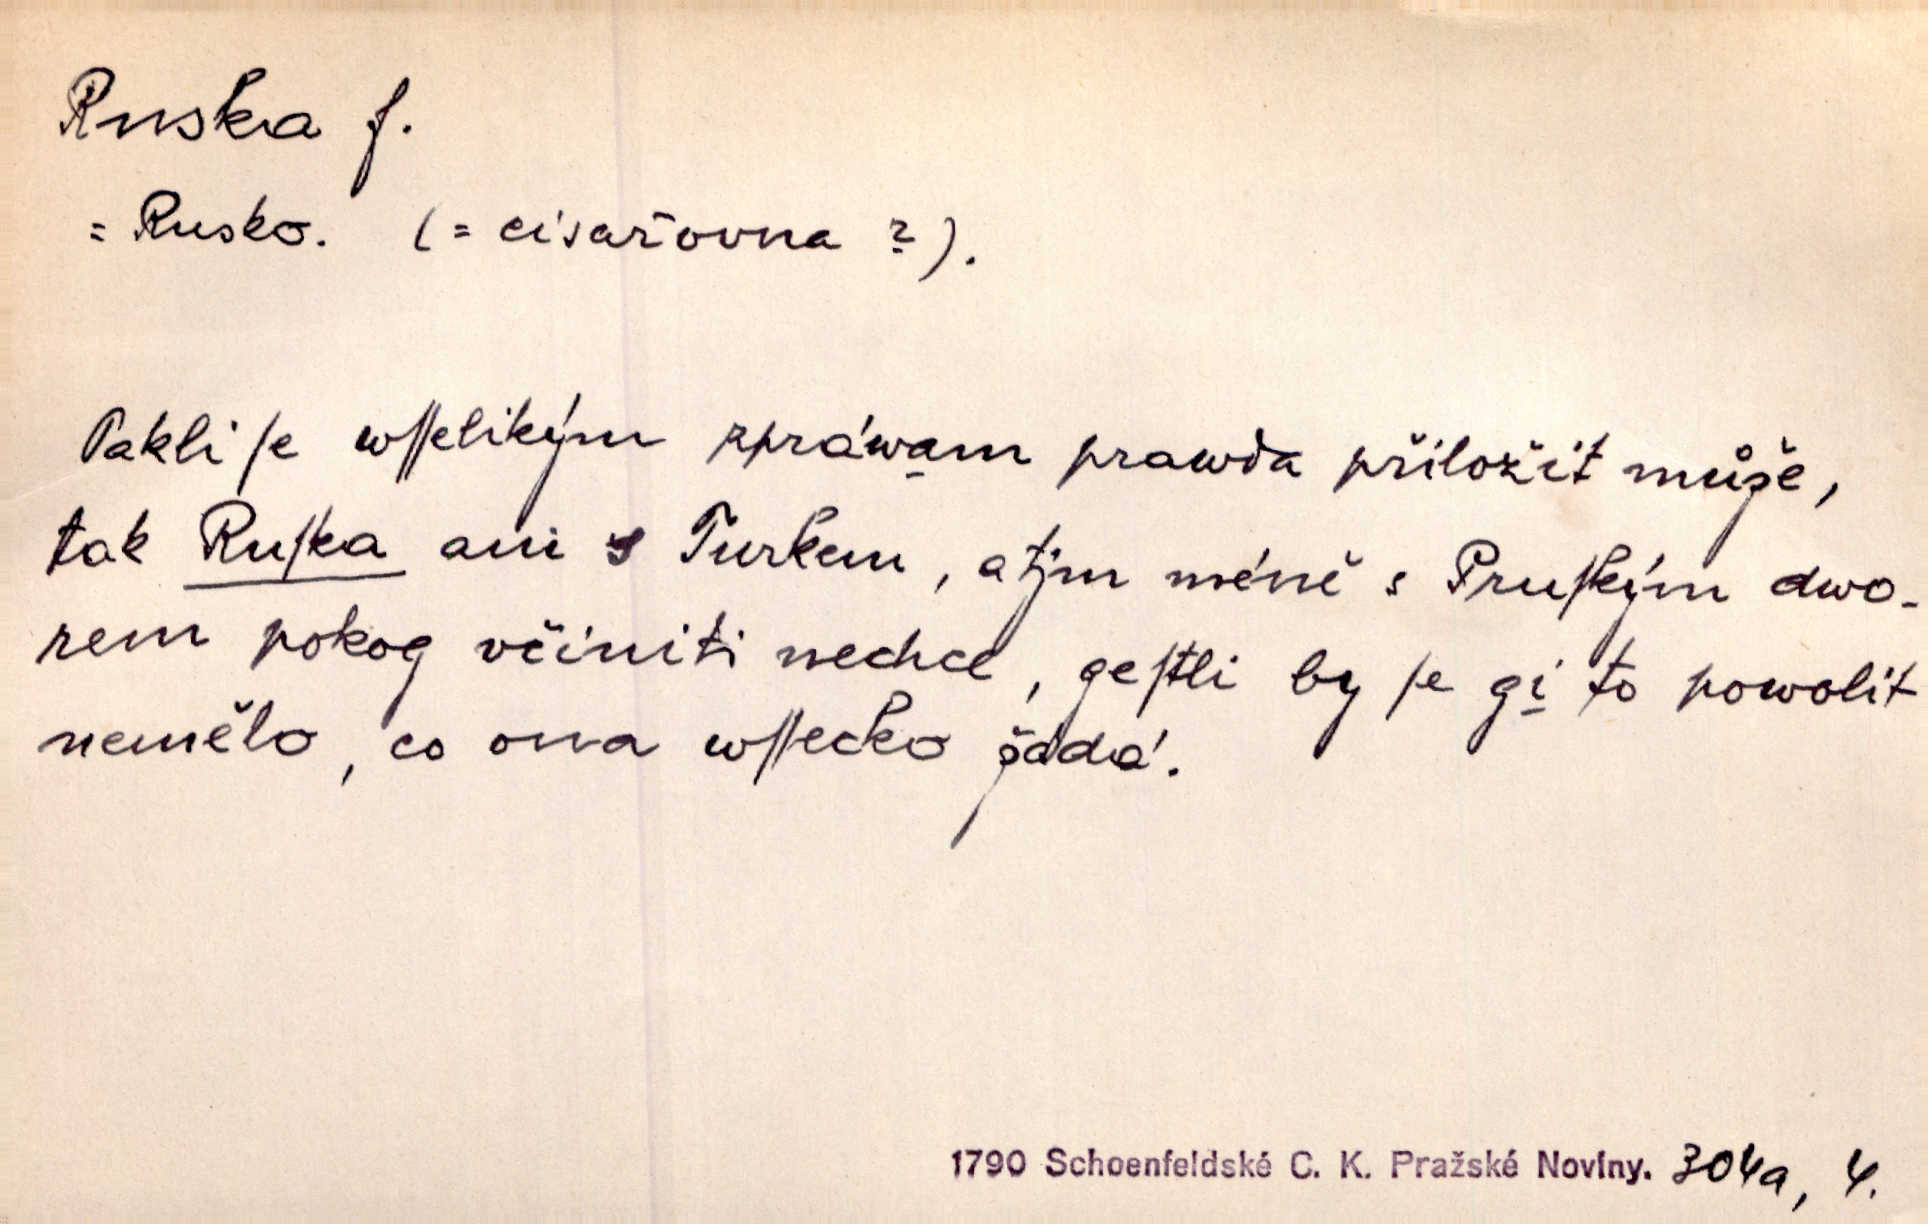 Ruska f.
= Rusko. (= císařovna ?).
Pakli ſe wſſelikým zpráwam prawda přiložit může,
tak Ruſka ani s Turkem, a tjm méně s Pruſkým dwo-
rem pokog včiniti nechce, geſtli by ſe gi to powolit
nemělo, co ona wſſecko žádá.
1790 Schoenfeldské C. K. Pražské Noviny. 304a, 4.